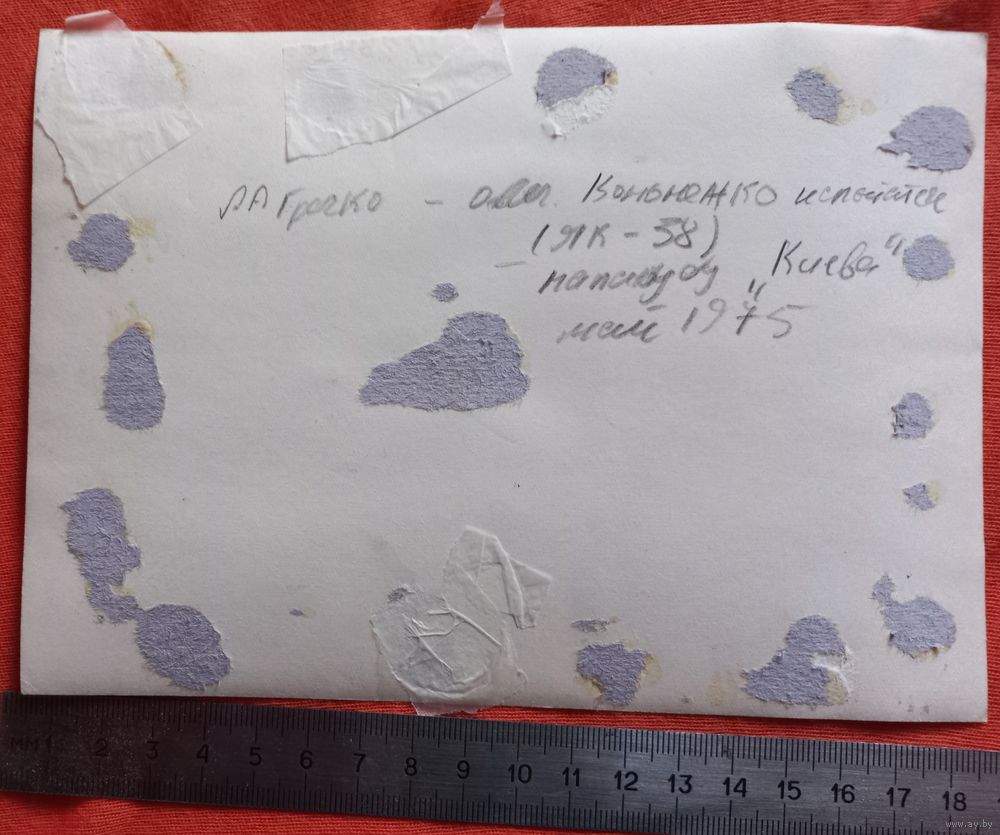 Гречко - Кононенко испытатель
(ЯК-38)
на палубу "Киева"
май 1975
мм 1 2 3 4 5 6 7 8 9 10 11 12 13 14 15 16 17 18
www.ay.by